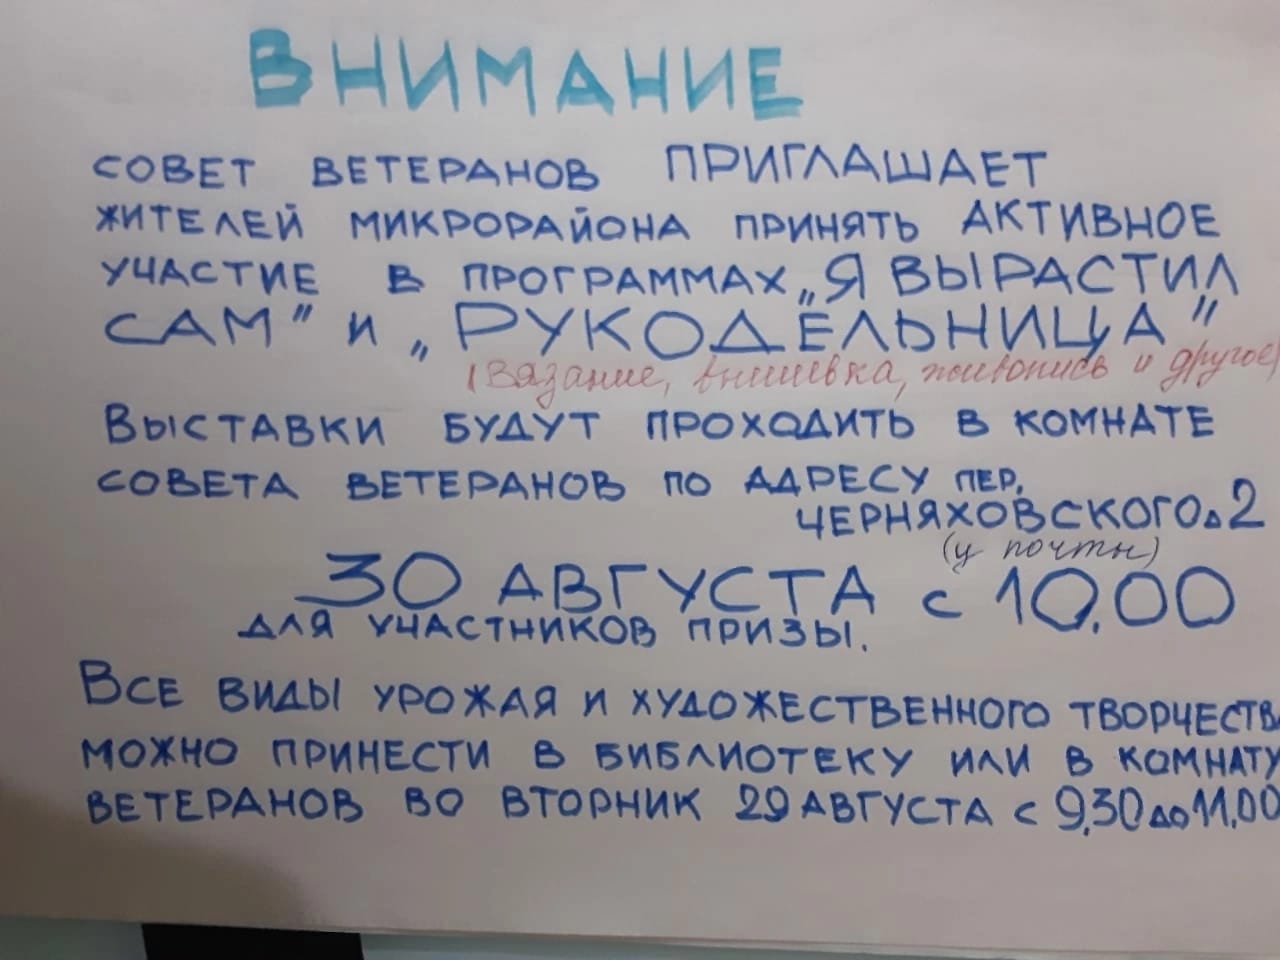 ВНИМАНИЕ
СОВЕТ ВЕТЕРАНОВ ПРИГЛАШАЕТ
ЖИТЕЛЕЙ МИКРОРАЙОНА ПРИНЯТЬ АКТИВНОЕ
УЧАСТИЕ В ПРОГРАММАХ „Я ВЫРАСТИЛ
САМ" и „РУКОДЕЛЬНИЦА"
(Вязание, вышивка, живопись и другое)
ВЫСТАВКИ БУДУТ ПРОХОДИТЬ В КОМНАТЕ
СОВЕТА ВЕТЕРАНОВ ПО АДРЕСУ ПЕР.
ЧЕРНЯХОВСКОГО Д 2
(у почты)
30 АВГУСТА с 10.00
ДЛЯ УЧАСТНИКОВ ПРИЗЫ.
ВСЕ ВИДЫ УРОЖАЯ И ХУДОЖЕСТВЕННОГО ТВОРЧЕСТВ
МОЖНО ПРИНЕСТИ В БИБЛИОТЕКУ ИЛИ В КОМНАТУ
ВЕТЕРАНОВ ВО ВТОРНИК 29 АВГУСТА с 9,30 до 11.00